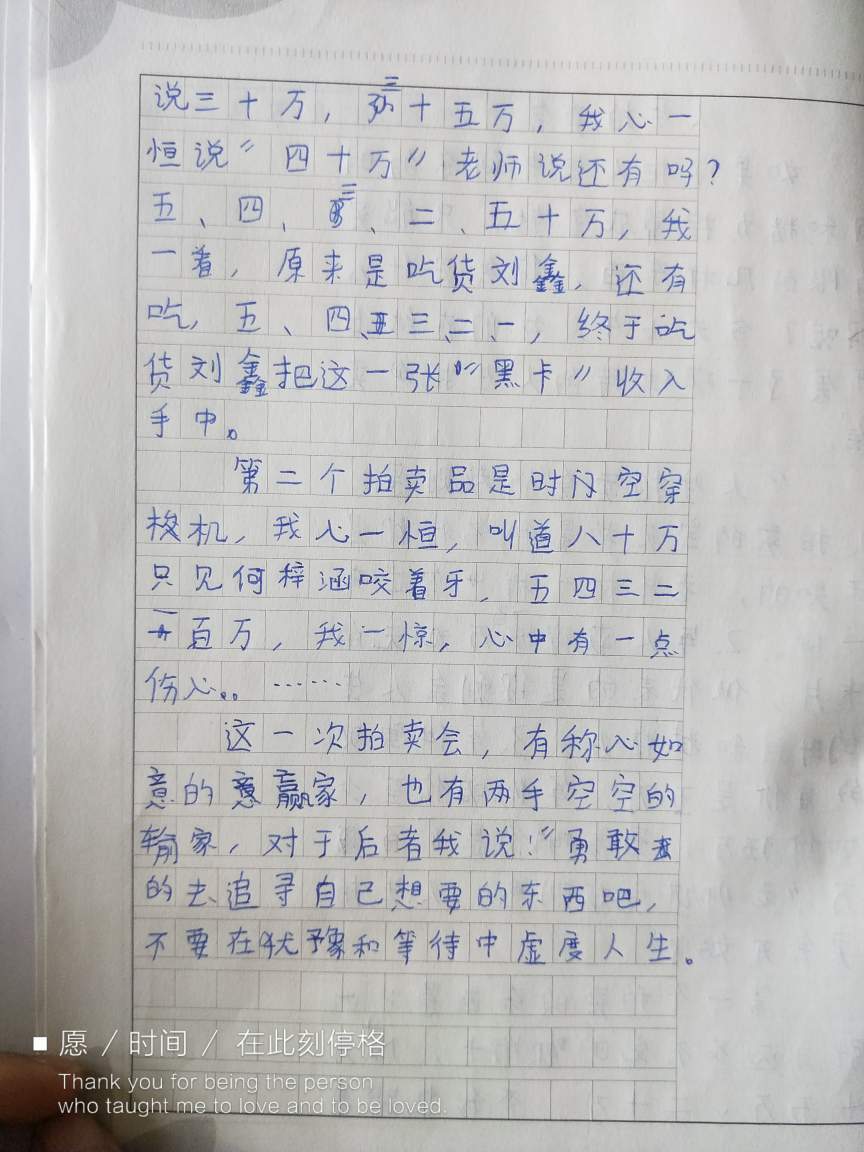 说三十万，三十五万，我心一
恒说“四十万”老师说还有吗？
五、四、三、二、五十万，我
一着，原来是吃货刘鑫，还有
吃，五、四、三、二、一，终于吃
货刘鑫把这一张“黑卡”收入
手中。
第二个拍卖品是时闪空穿
梭机，我心一恒，叫道八十万
只见何梓涵咬着牙，五四三二
一百万，我一惊，心中有一点
伤心。。……
这一次拍卖会，有称心如
意的赢家，也有两手空空的
输家，对于后者我说！“勇敢
的去追寻自己想要的东西吧，
不要在犹豫和等待中虚度人生。
愿 / 时间 / 在此刻停格
Thank you for being the person
who taught me to love and to be loved.